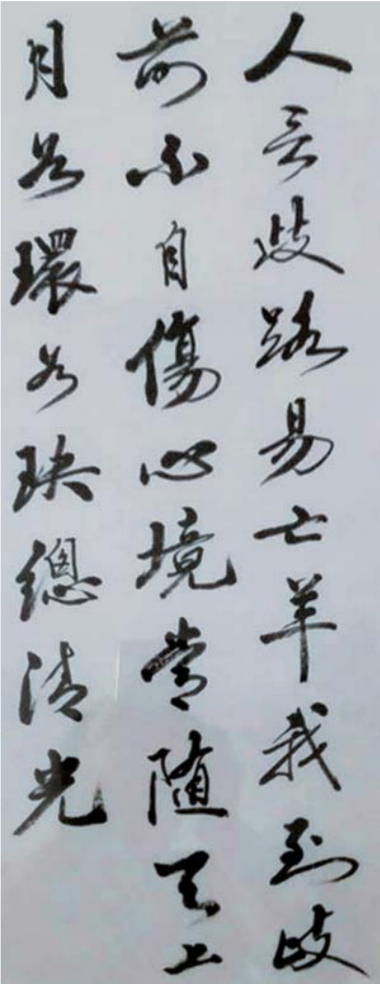 人言歧路易亡羊我到歧
前不自傷心境常随天上
月若環若玦總清光